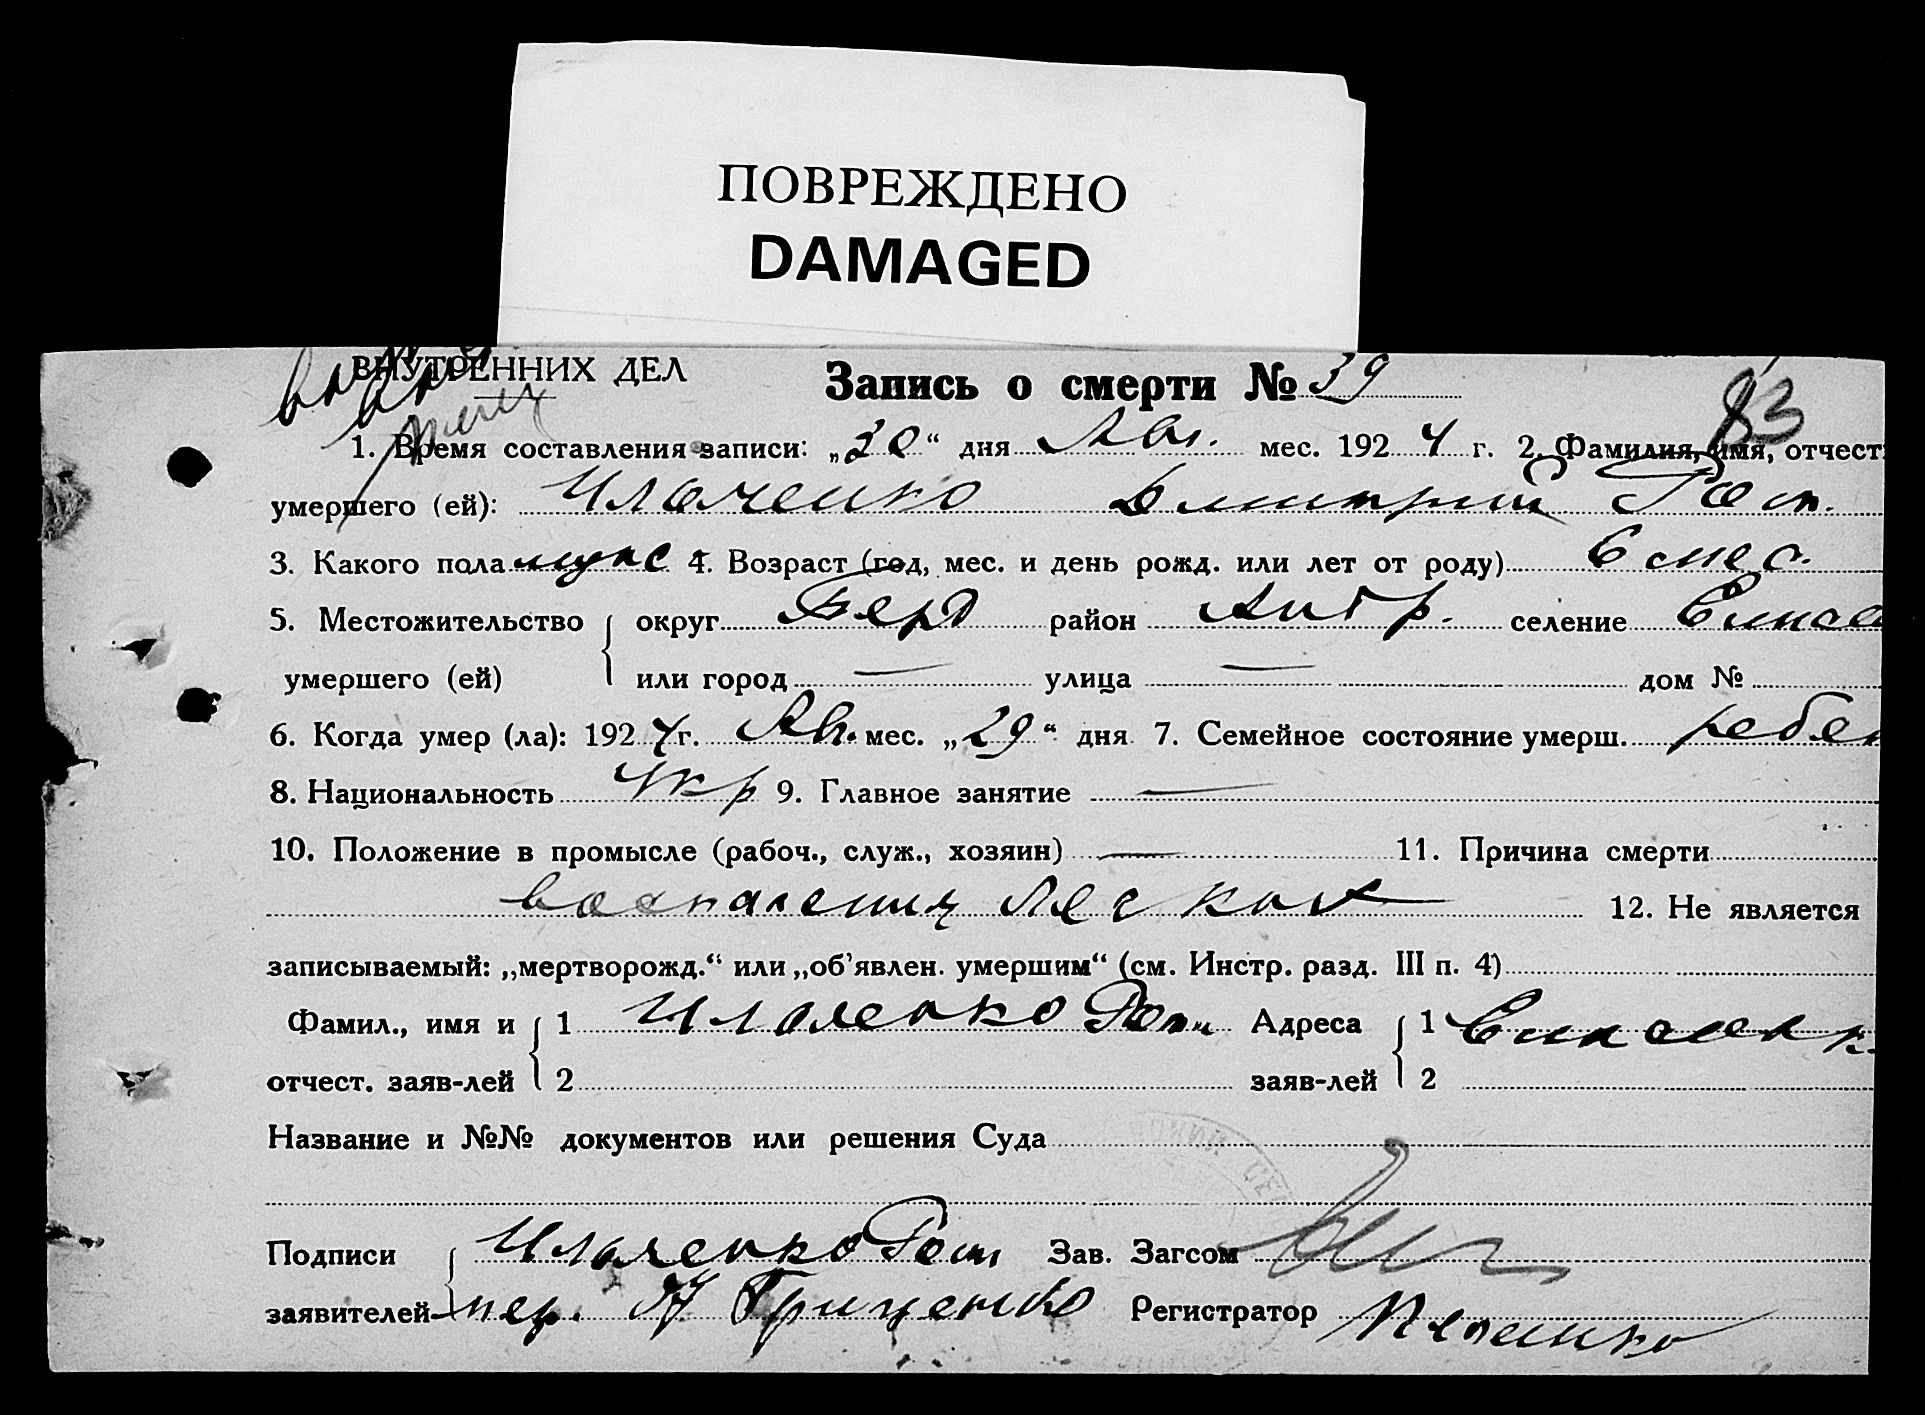 ПОВРЕЖДЕНО
DAMAGED
ВНУТРЕННИХ ДЕЛ
Запись о смерти № 39
83
1. Время составления записи: „30“ дня Авг. мес. 1924 г. 2. Фамилия, имя, отчест
умершего (ей): Ильченко Дмитрий Рот.
3. Какого пола мужс 4. Возраст (год, мес. и день рожд. или лет от роду) 6 мес.
5. Местожительство округ Берд район Андр. селение
умершего (ей) или город — улица — дом №
6. Когда умер (ла): 1924 г. Авг. мес. „29“ дня 7. Семейное состояние умерш. ребен
8. Национальность Укр 9. Главное занятие —
10. Положение в промысле (рабоч., служ., хозяин) — 11. Причина смерти
воспаления легких 12. Не является
записываемый: „мертворожд.“ или „об'явлен. умершим“ (см. Инстр. разд. III п. 4)
Фамил., имя и 1 Ильченко Адреса 1
отчест. заяв-лей 2 заяв-лей 2
Название и №№ документов или решения Суда
Подписи Ильченко Зав. Загсом
заявителей Гриценко Регистратор